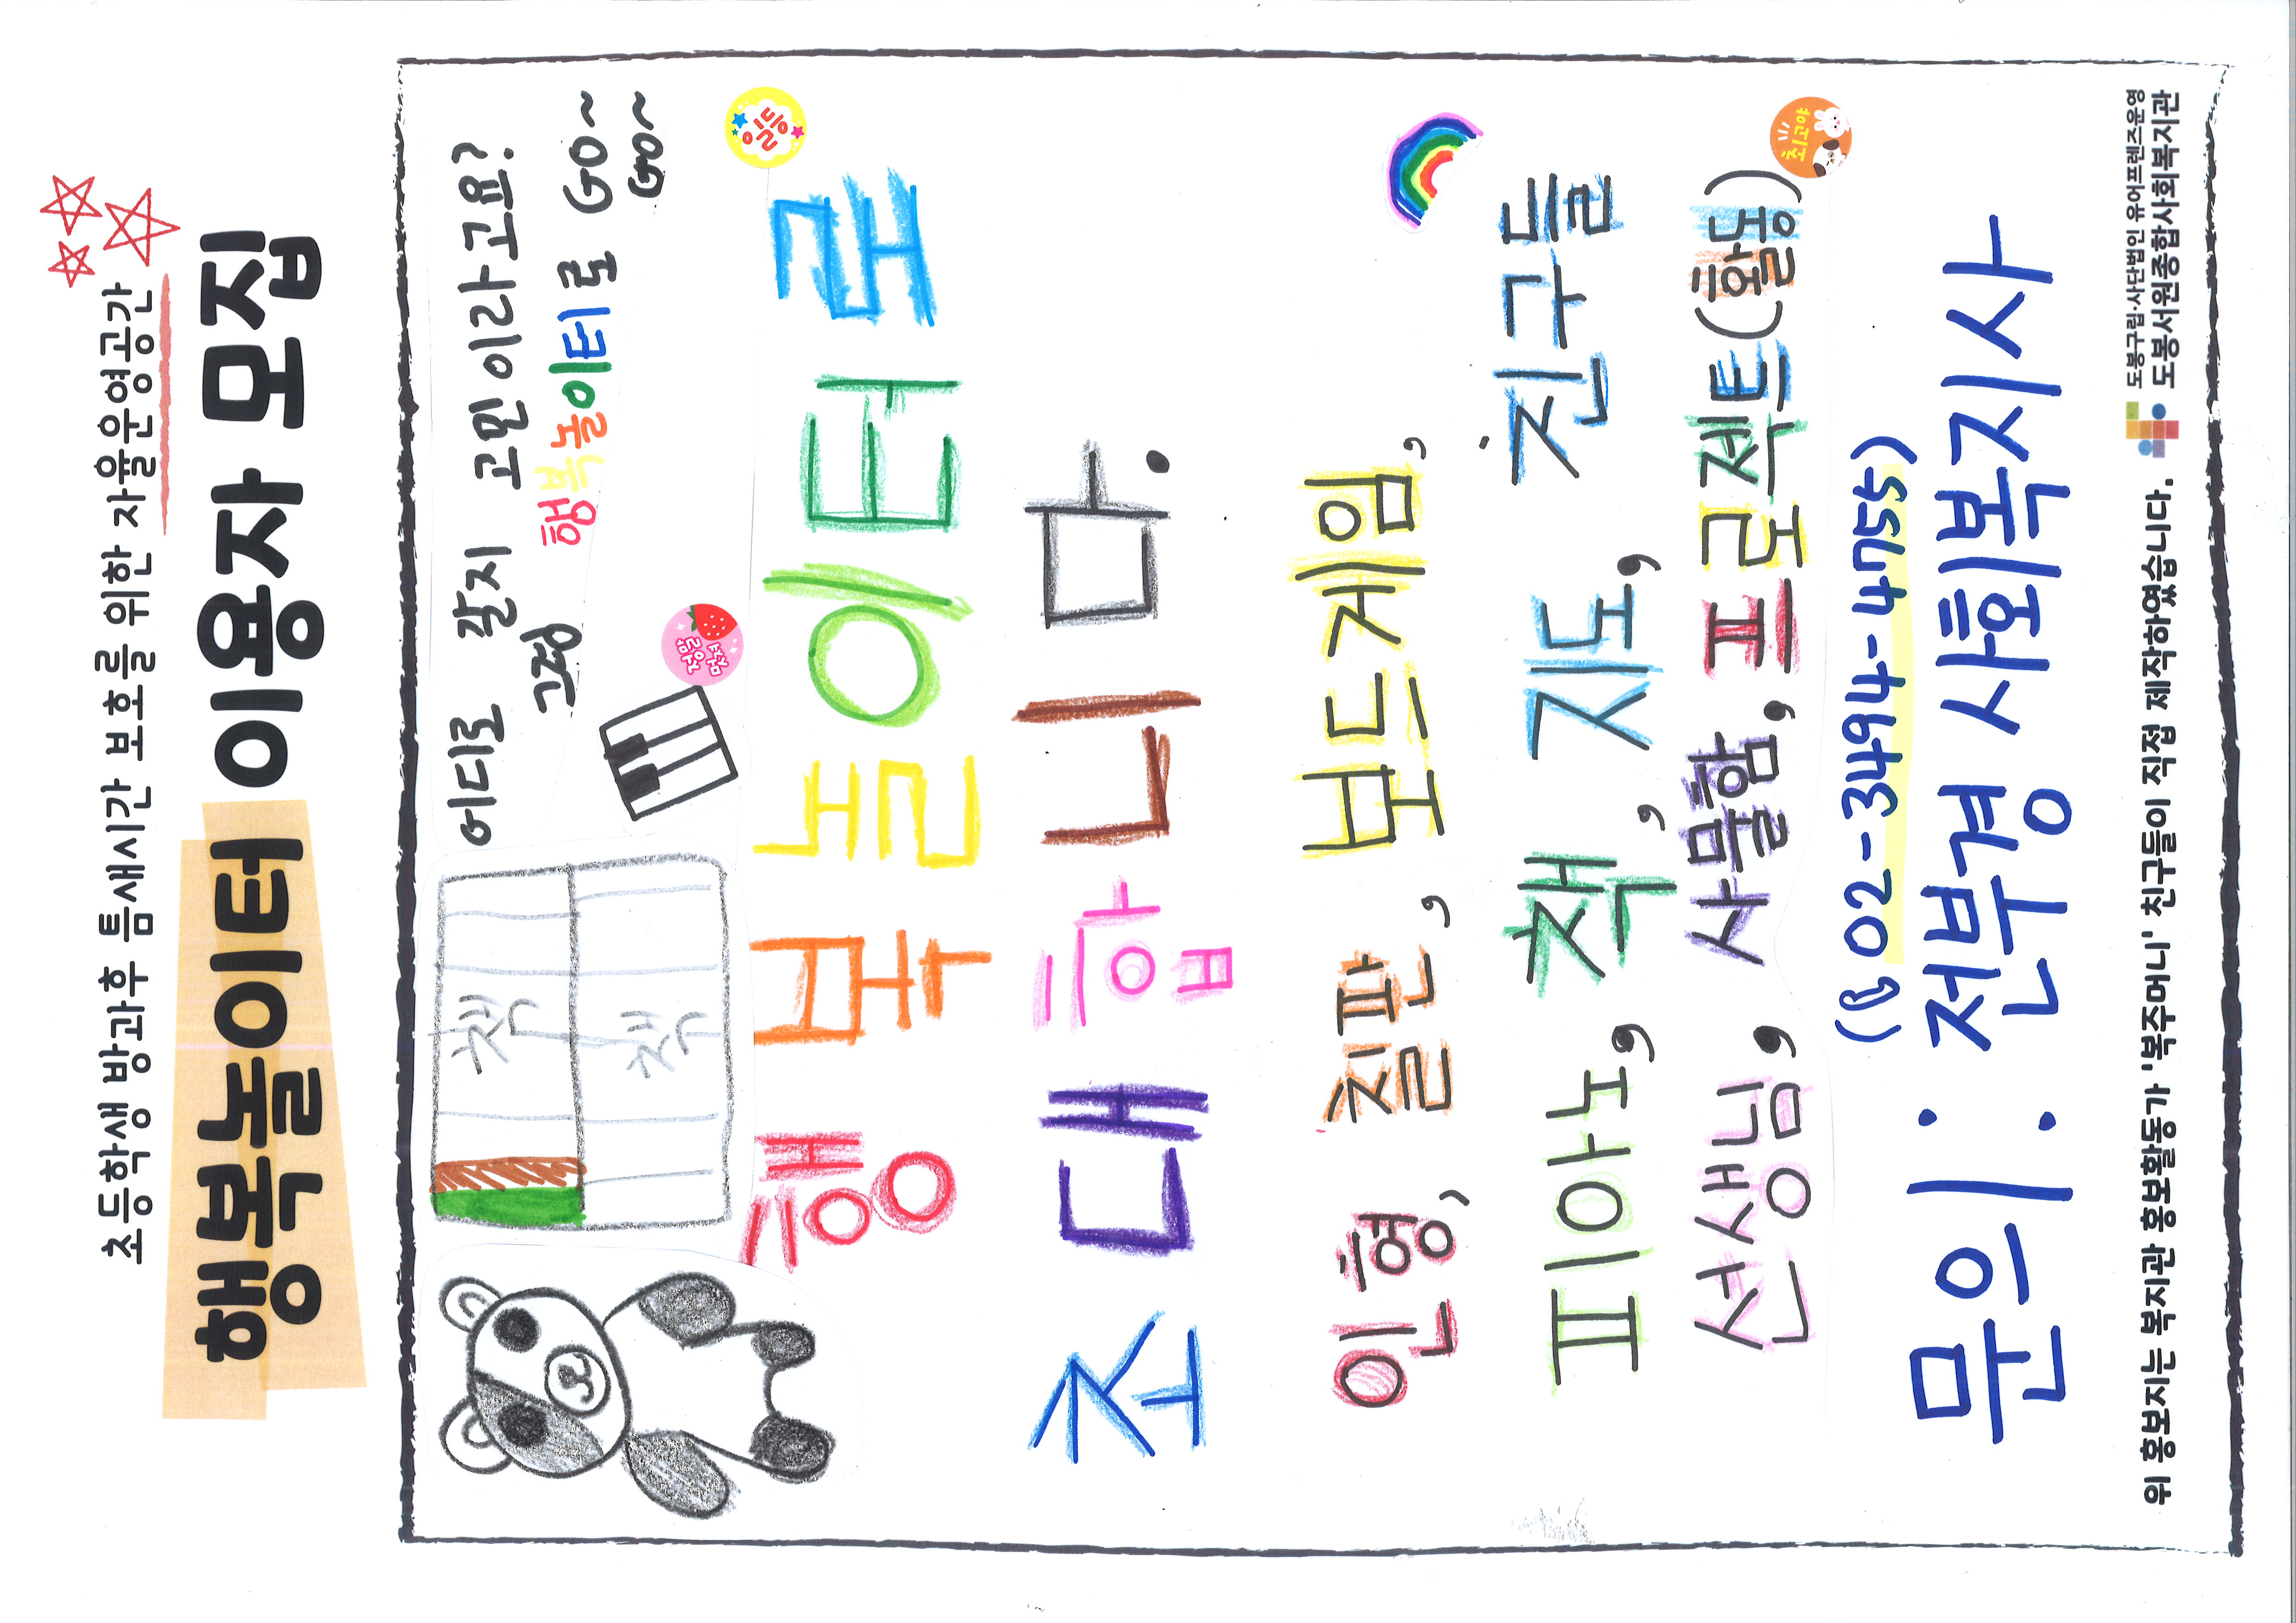 초등학생 방과후 틈새시간 보호를 위한 자율운영공간
행복놀이터 이용자 모집
어디로 갈지 고민이라고요?
그럼 행복놀이터로 GO~
GO~
책
책
참
잘음
일등
행복놀이터로
초대합니다.
인형, 칠판, 보드게임,
피아노, 책, 지도, 친구들
선생님, 사물함, 프로젝트(활동)
최고야
(02-3494-4755)
문의: 전부경 사회복지사
위 홍보지는 복지관 홍보활동가 '복주머니' 친구들이 직접 제작하였습니다.
도봉구립·사단법인 유어프렌즈운영
도봉서원종합사회복지관